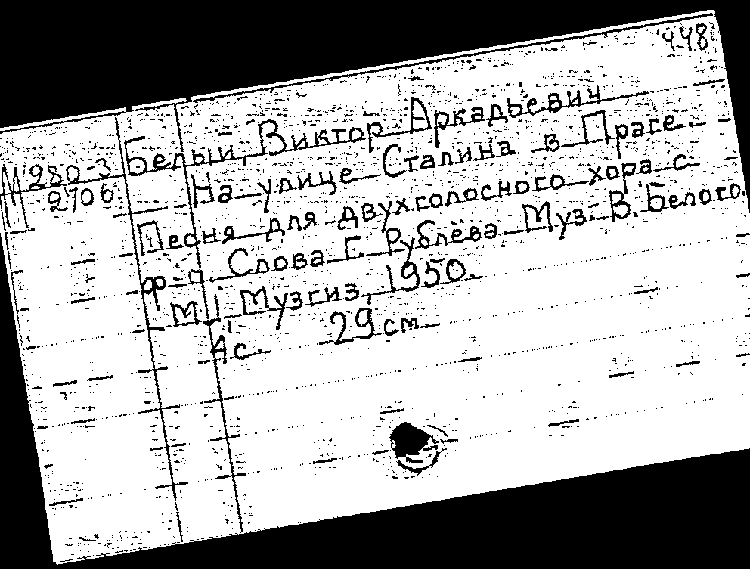 448
М 280-3
2706
Белый, Виктор Аркадьевич
На улице Сталина в Праге.
Песня для двухголосного хора с
ф-п. Слова Г. Рублёва. Муз. В. Белого.
М., Музгиз, 1950.
4 с. 29 см.